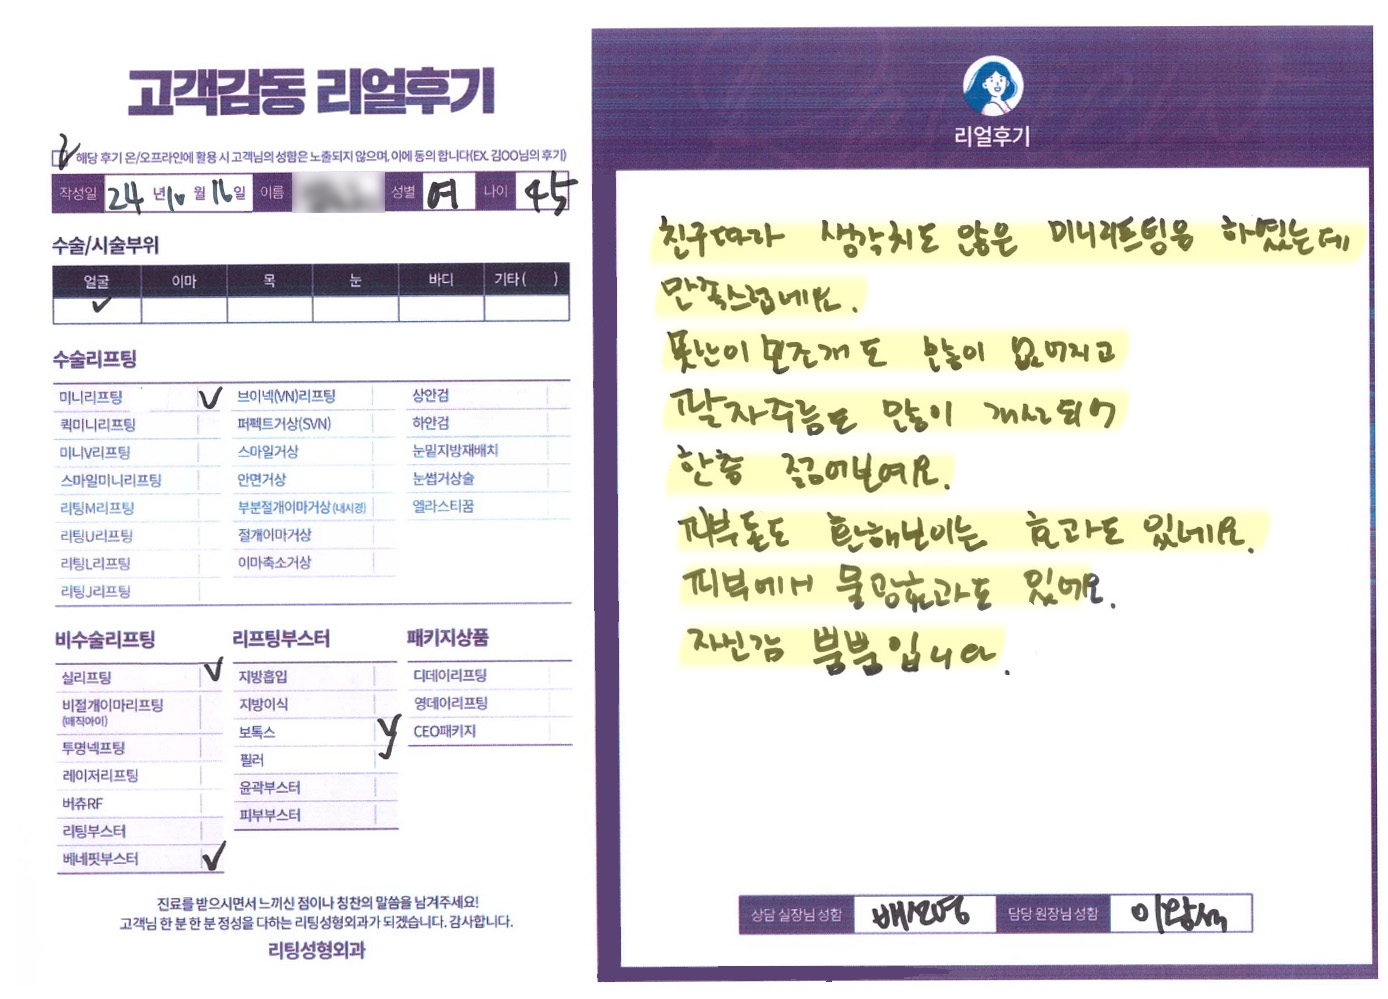 고객감동 리얼후기
해당 후기 온/오프라인에 활용 시 고객님의 성함은 노출되지 않으며, 이에 동의 합니다(EX. 김OO님의 후기)
작성일 24년 10월 16일 이름 성별 여 나이 45
수술/시술부위
얼굴 이마 목 눈 바디 기타( )
수술리프팅
미니리프팅 브이넥(VN)리프팅 상안검
퀵미니리프팅 퍼펙트거상(SVN) 하안검
미니V리프팅 스마일거상 눈밑지방재배치
스마일미니리프팅 안면거상 눈썹거상술
리팅M리프팅 부분절개이마거상(내시경) 엘라스티꿈
리팅U리프팅 절개이마거상
리팅L리프팅 이마축소거상
리팅J리프팅
비수술리프팅 리프팅부스터 패키지상품
실리프팅 지방흡입 디데이리프팅
비절개이마리프팅 지방이식 영데이리프팅
(매직아이)
투명넥프팅 보톡스 CEO패키지
레이저리프팅 필러
버츄RF 윤곽부스터
리팅부스터 피부부스터
베네핏부스터
진료를 받으시면서 느끼신 점이나 칭찬의 말씀을 남겨주세요!
고객님 한 분 한 분 정성을 다하는 리팅성형외과가 되겠습니다. 감사합니다.
리팅성형외과
리얼후기
친구따라 생각치도 않은 미니리프팅을 하였는데
만족스럽네요.
못난이 모존개도 많이 없어지고
팔자주름도 많이 개선되어
한층 젊어보여요.
피부톤도 환해보이는 효과도 있네요.
피부에서 물광효과도 있어요.
자신감 뿜뿜입니다.
상담 실장님 성함 배선영 담당 원장님 성함